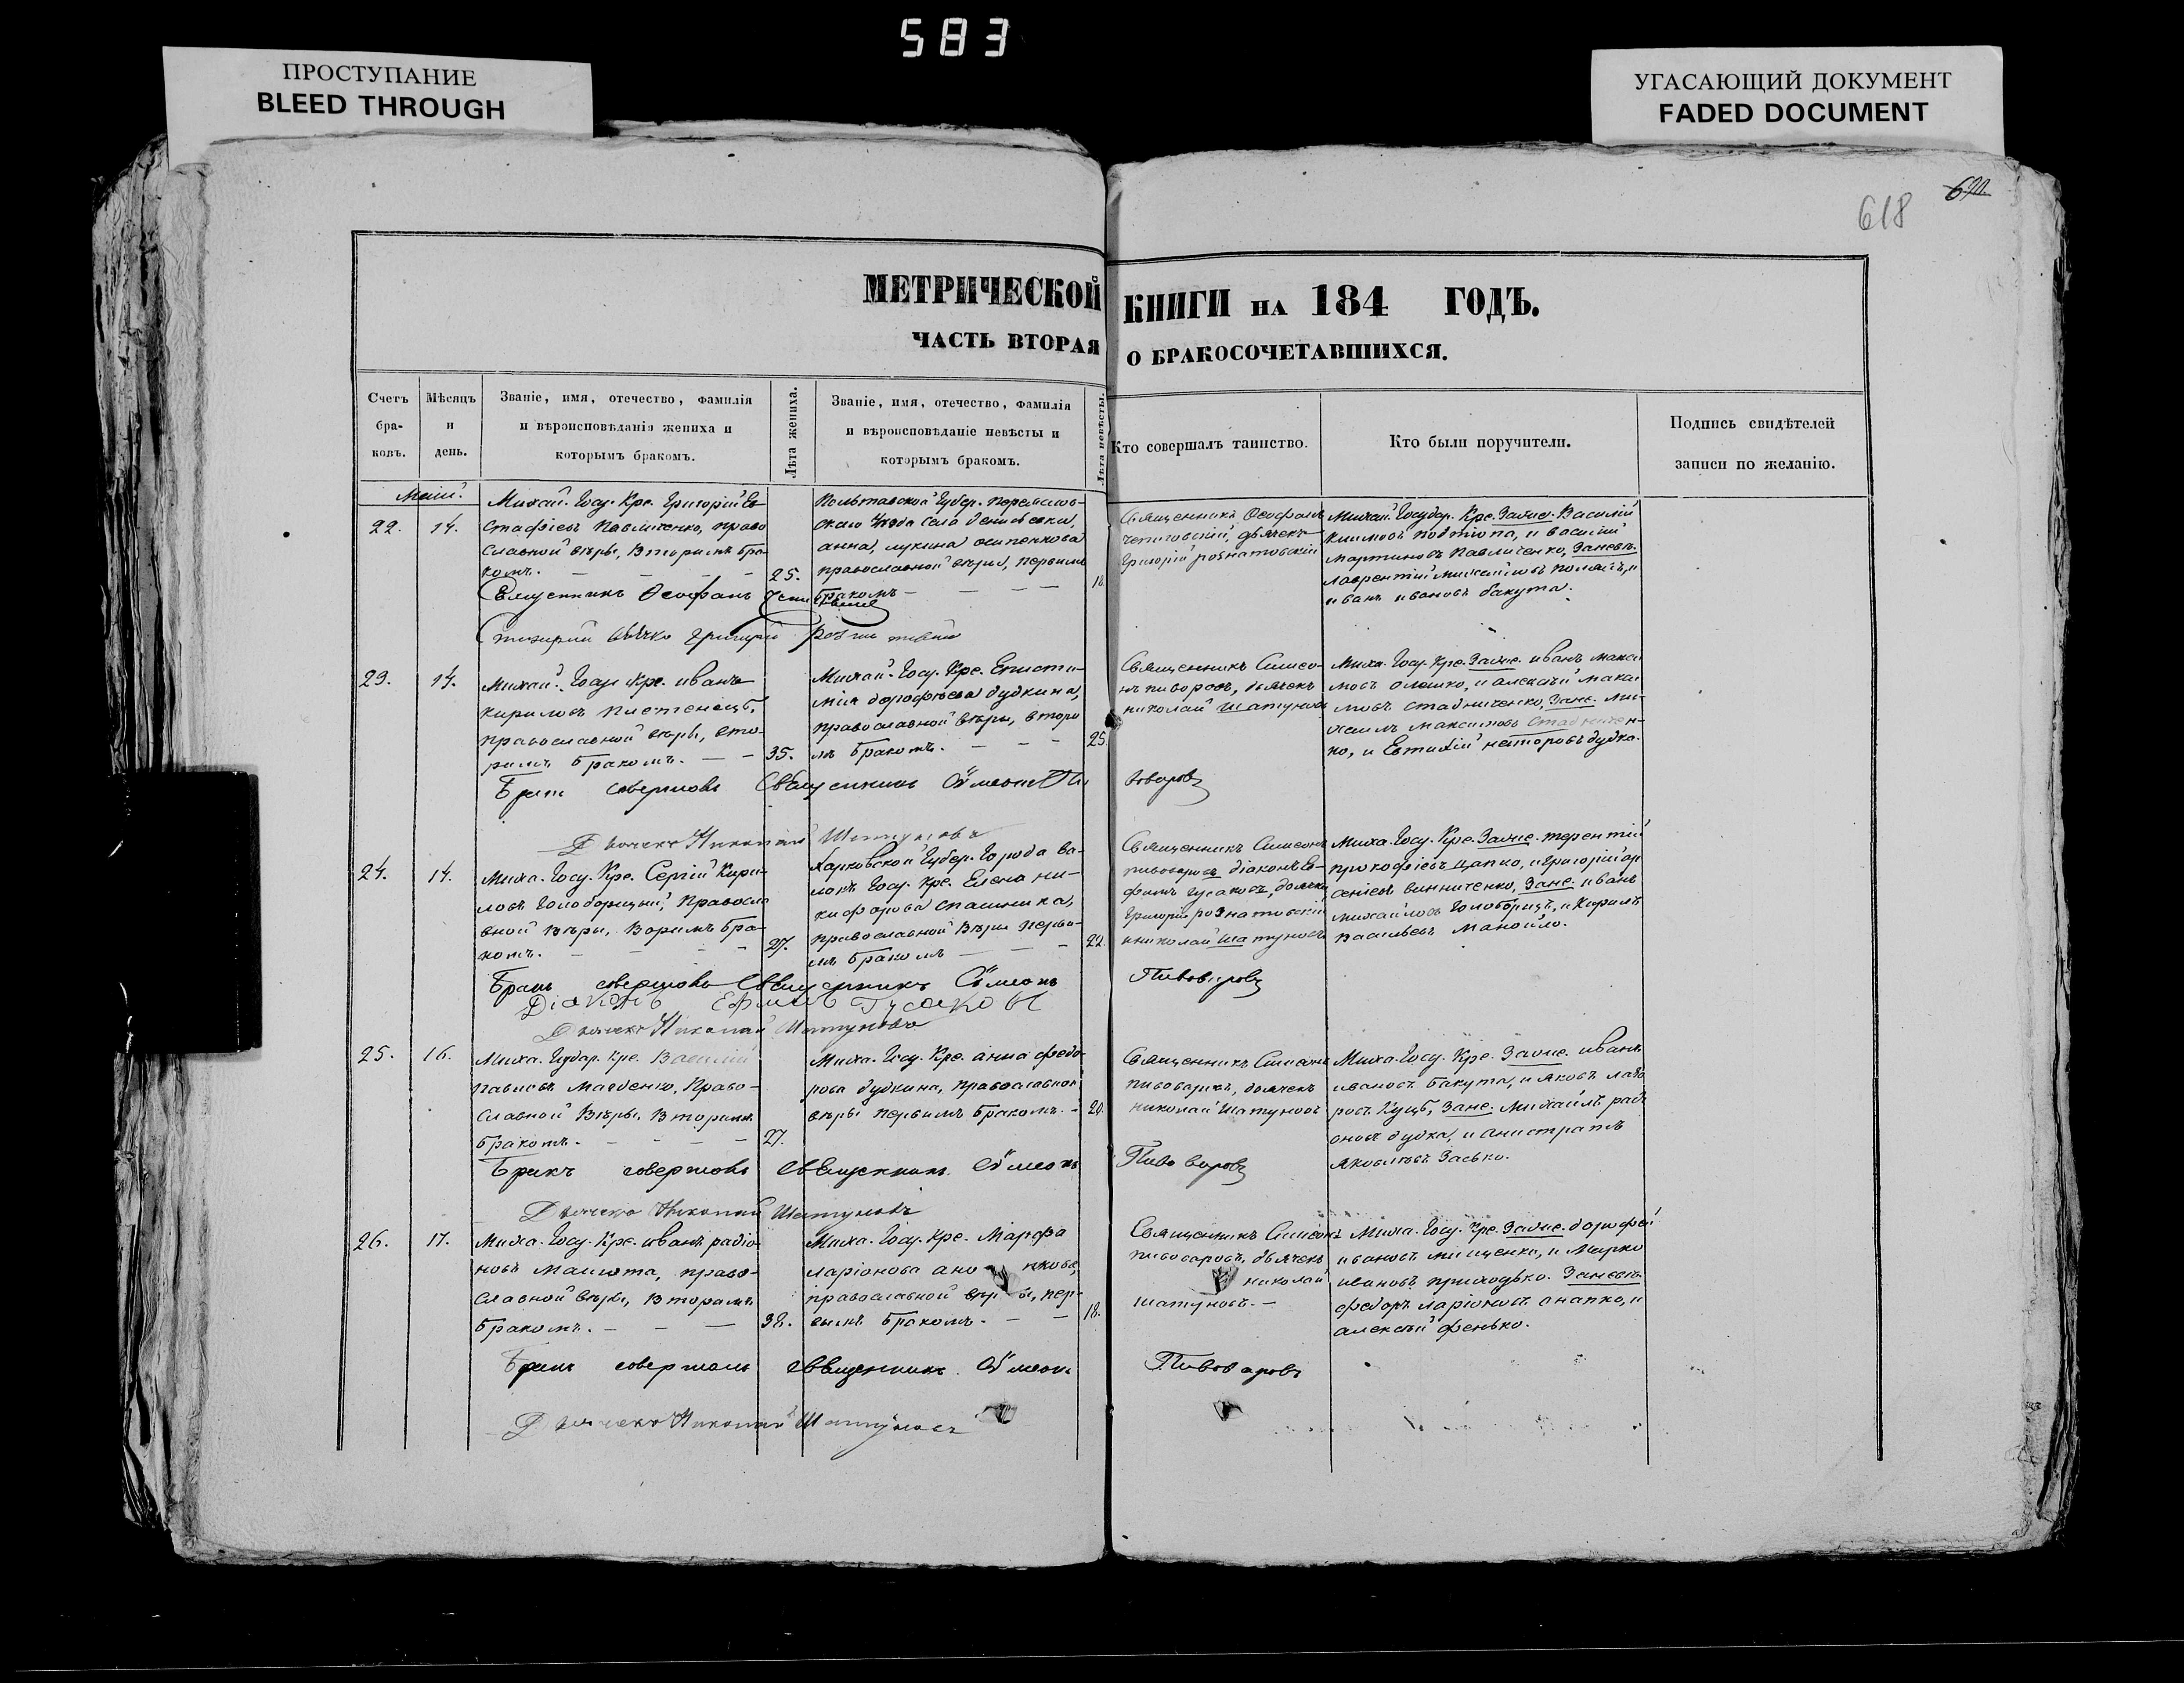 583
ПРОСТУПАНИЕ
BLEED THROUGH
УГАСАЮЩИЙ ДОКУМЕНТ
FADED DOCUMENT
618
МЕТРИЧЕСКОЙ КНИГИ НА 184 ГОДЪ.
ЧАСТЬ ВТОРАЯ О БРАКОСОЧЕТАВШИХСЯ.
Счетъ
бра-
ковъ.
Мѣсяцъ
и
день.
Званіе, имя, отечество, фамилія
и вѣроисповѣданіе жениха и
которымъ бракомъ.
Лѣта жениха.
Званіе, имя, отечество, фамилія
и вѣроисповѣданіе невѣсты и
которымъ бракомъ.
Лѣта невѣсты.
Кто совершалъ таинство.
Кто были поручители.
Подпись свидѣтелей
записи по желанію.
22.
14.
Михай. Госу. Кре. Григорій Ев-
стафіевъ Павличенко, право
славной вѣры, вторымъ бра-
комъ.
25.
Полтавской Губер. Переяслов-
скаго Уѣзда села
анна, лукина осипенкова
православной вѣры, первымъ
бракомъ
18.
Священникъ Ѳеофанъ
дьячекъ
Григорій рознатовскій
Михай. Государ. Кре. Заже. Василій
Климовъ и василій
Мартиновъ Павличенко, Заневѣ.
лаврентій михайловъ
иванъ ивановъ бакута.
Священникъ Ѳеофанъ
23.
14.
Михай. Госу. Кре. иванъ
кириловъ плетенецъ,
православной вѣры, вто-
рымъ бракомъ.
35.
Михай. Госу. Кре. Еписти-
мія дорофѣева дудкина,
православной вѣры, вторы
мъ бракомъ.
25
Священникъ Симео-
нъ пиворов, дьячекъ
николай Шатуновъ
Миха. Госу. Кре. Заже. иванъ макси
мовъ олешко, и алексѣй макси
мовъ стадниченко, Зане. Ми-
хаилъ максимовъ Стадничен-
ко, и Евтихій несторовъ дудка.
Бракъ совершалъ Священникъ Сѵмеонъ Пи воваровъ
Дьячекъ Николай Шатуновъ
24.
14.
Миха. Госу. Кре. Сергій Кири-
ловъ Голоборицкій, Правосла
вной вѣры, Ворымъ бра-
комъ.
27.
Харковской Губер. Города Ва-
локъ Госу. Кре. Елена ни-
кифорова
православной Вѣры первы-
мъ бракомъ
22.
Священникъ Симеонъ
пивоваровъ діаконъ Е-
фимъ Гусаковъ, дьячки
Григорій рознатовскій
и николай Шатуновъ
Миха. Госу. Кре. Заже. терентій
прокофіевъ цапко, и григорій ар
сеніевъ винниченко, Зане. иванъ
михайловъ Голоборицъ, и Кирилъ
васильевъ Манойло.
Бракъ совершалъ Священникъ Сѵмеонъ Пивоваровъ
Діаконъ Ефимъ Гусаковъ
Дьячекъ Николай Шатуновъ
25.
16.
Миха. Гудар. Кре. Василій
павловъ Право-
славной Вѣры, вторымъ
бракомъ.
27.
Миха. Госу. Кре. анна федо
рова дудкина, православной
вѣры первымъ бракомъ.
20.
Священникъ Симеонъ
пивоваровъ, дьячекъ
николай Шатуновъ
Миха. Госу. Кре. Заже. иванъ
ивановъ бакута, и яковъ лаза
ровъ Куцъ, Зане. Михаилъ ради
оновъ дудка, и
яковлевъ Засько.
Бракъ совершалъ Священникъ Сѵмеонъ Пиво варовъ
Дьячекъ Николай Шатуновъ
26.
17.
Миха. Госу. Кре. иванъ радіо
новъ право-
славной вѣры, вторымъ
бракомъ.
38.
Миха. Госу. Кре. Марфа
ларіонова
православной вѣры, пер-
вымъ бракомъ.
18.
Священникъ Симеонъ
пивоваровъ, дьячекъ
николай
шатуновъ.
Миха. Госу. Кре. Заже. дорофей
ивановъ мищенко, и Марко
ивановъ приходько. Заневѣ.
федоръ ларіоновъ онапко, и
алексѣй фенько.
Бракъ совершалъ Священникъ Сѵмеонъ Пивоваровъ
Дьячекъ Николай Шатуновъ